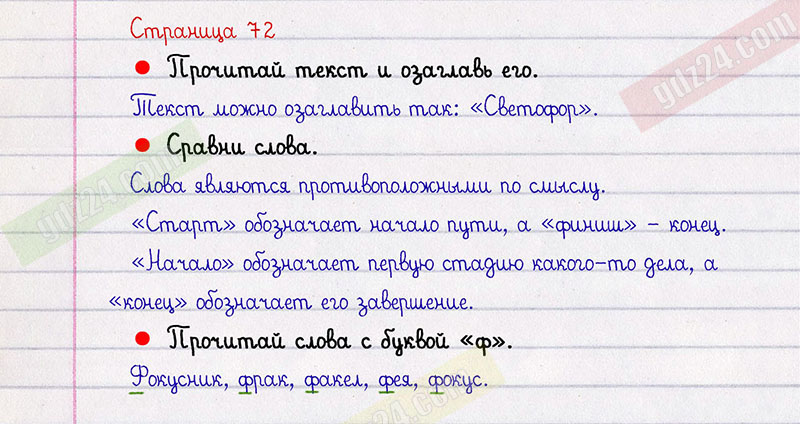 Страница 72
• Прочитай текст и озаглавь его.
Текст можно озаглавить так: «Светофор».
• Сравни слова.
Слова являются противоположными по смыслу.
«Старт» обозначает начало пути, а «финиш» – конец.
«Начало» обозначает первую стадию какого-то дела, а
«конец» обозначает его завершение.
• Прочитай слова с буквой «ф».
Фокусник, фрак, факел, фея, фокус.
gdz24.com
gdz24.com
gdz24.com